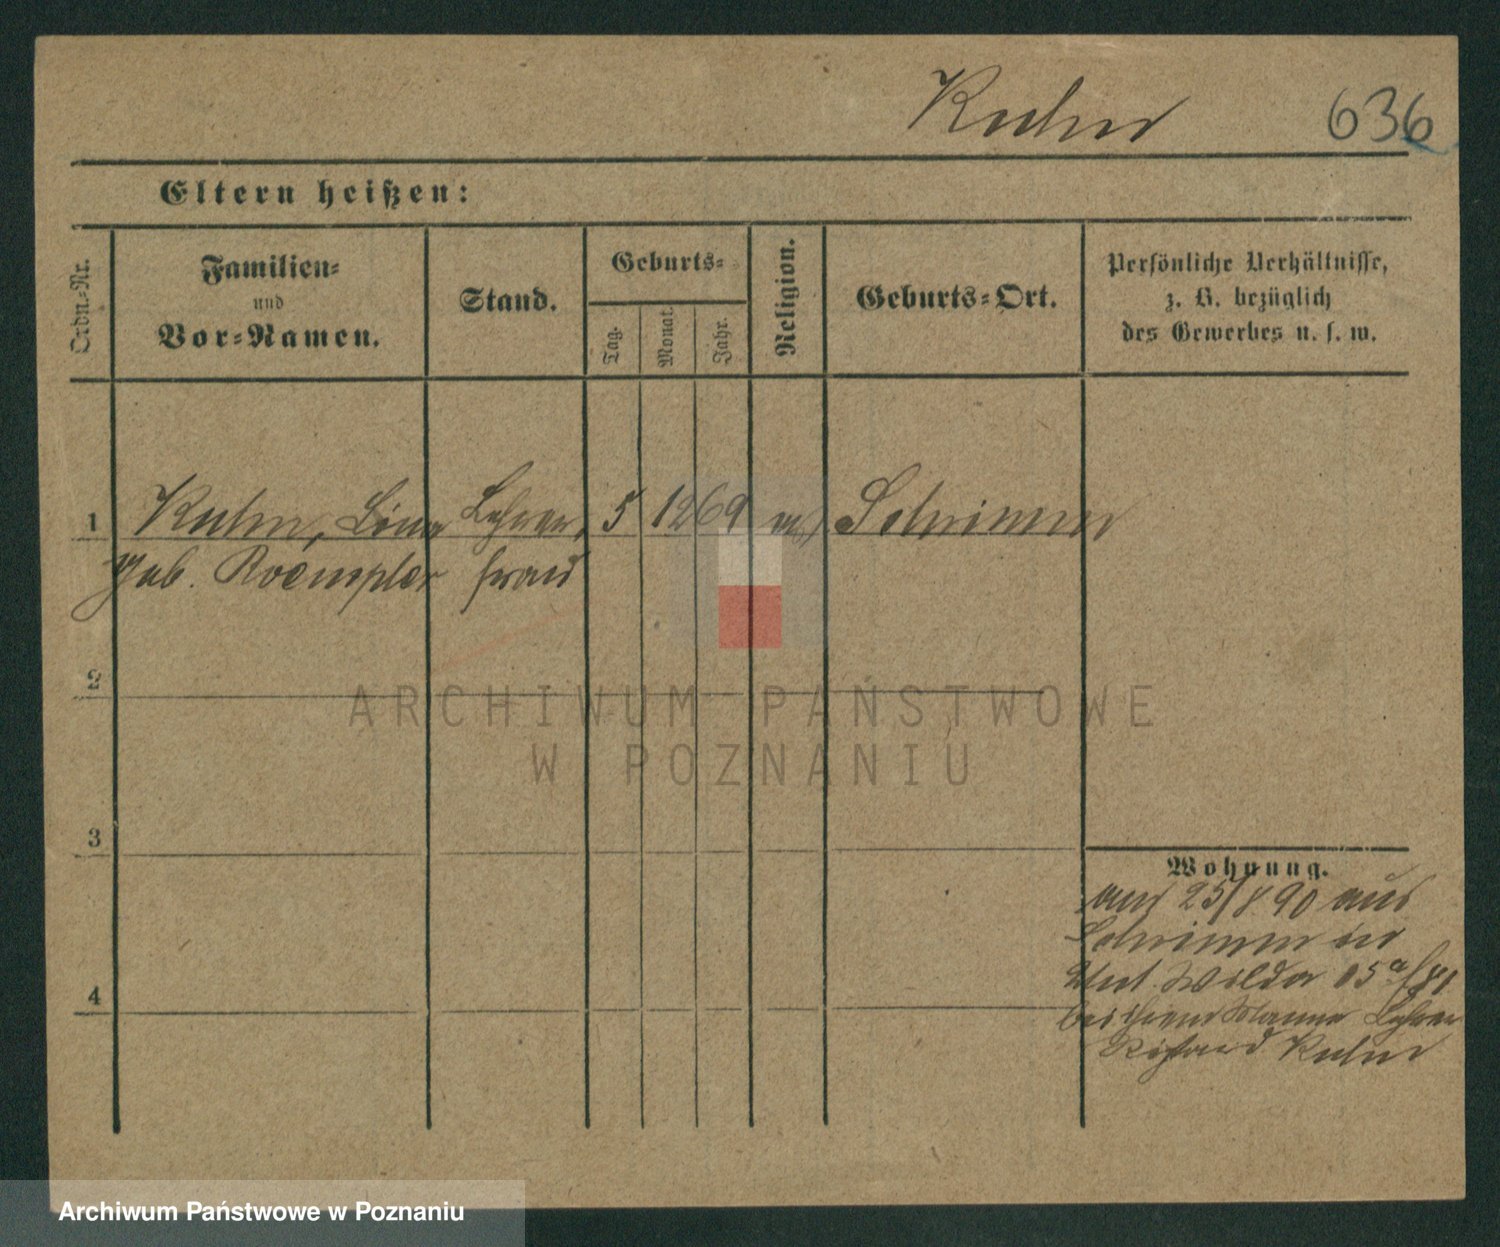 Kuhn 636
Eltern heißen:
Ordn.-Nr.
Familien-
und
Vor-Namen.
Stand.
Geburts-
Tag.
Monat.
Jahr.
Religion.
Geburts-Ort.
Persönliche Verhältnisse,
z. B. bezüglich
des Gewerbes u. s. w.
1 Kuhn, Lina Lehrer 5 12 69 Schrimm
geb. Roempler frau
2
3
4
ARCHIWUM PAŃSTWOWE
W POZNANIU
Wohnung.
am 25/8 90 aus
Schrimm in
Unt. Wilda 15a
bei ihrem Manne Lehrer
Richard Kuhn
Archiwum Państwowe w Poznaniu